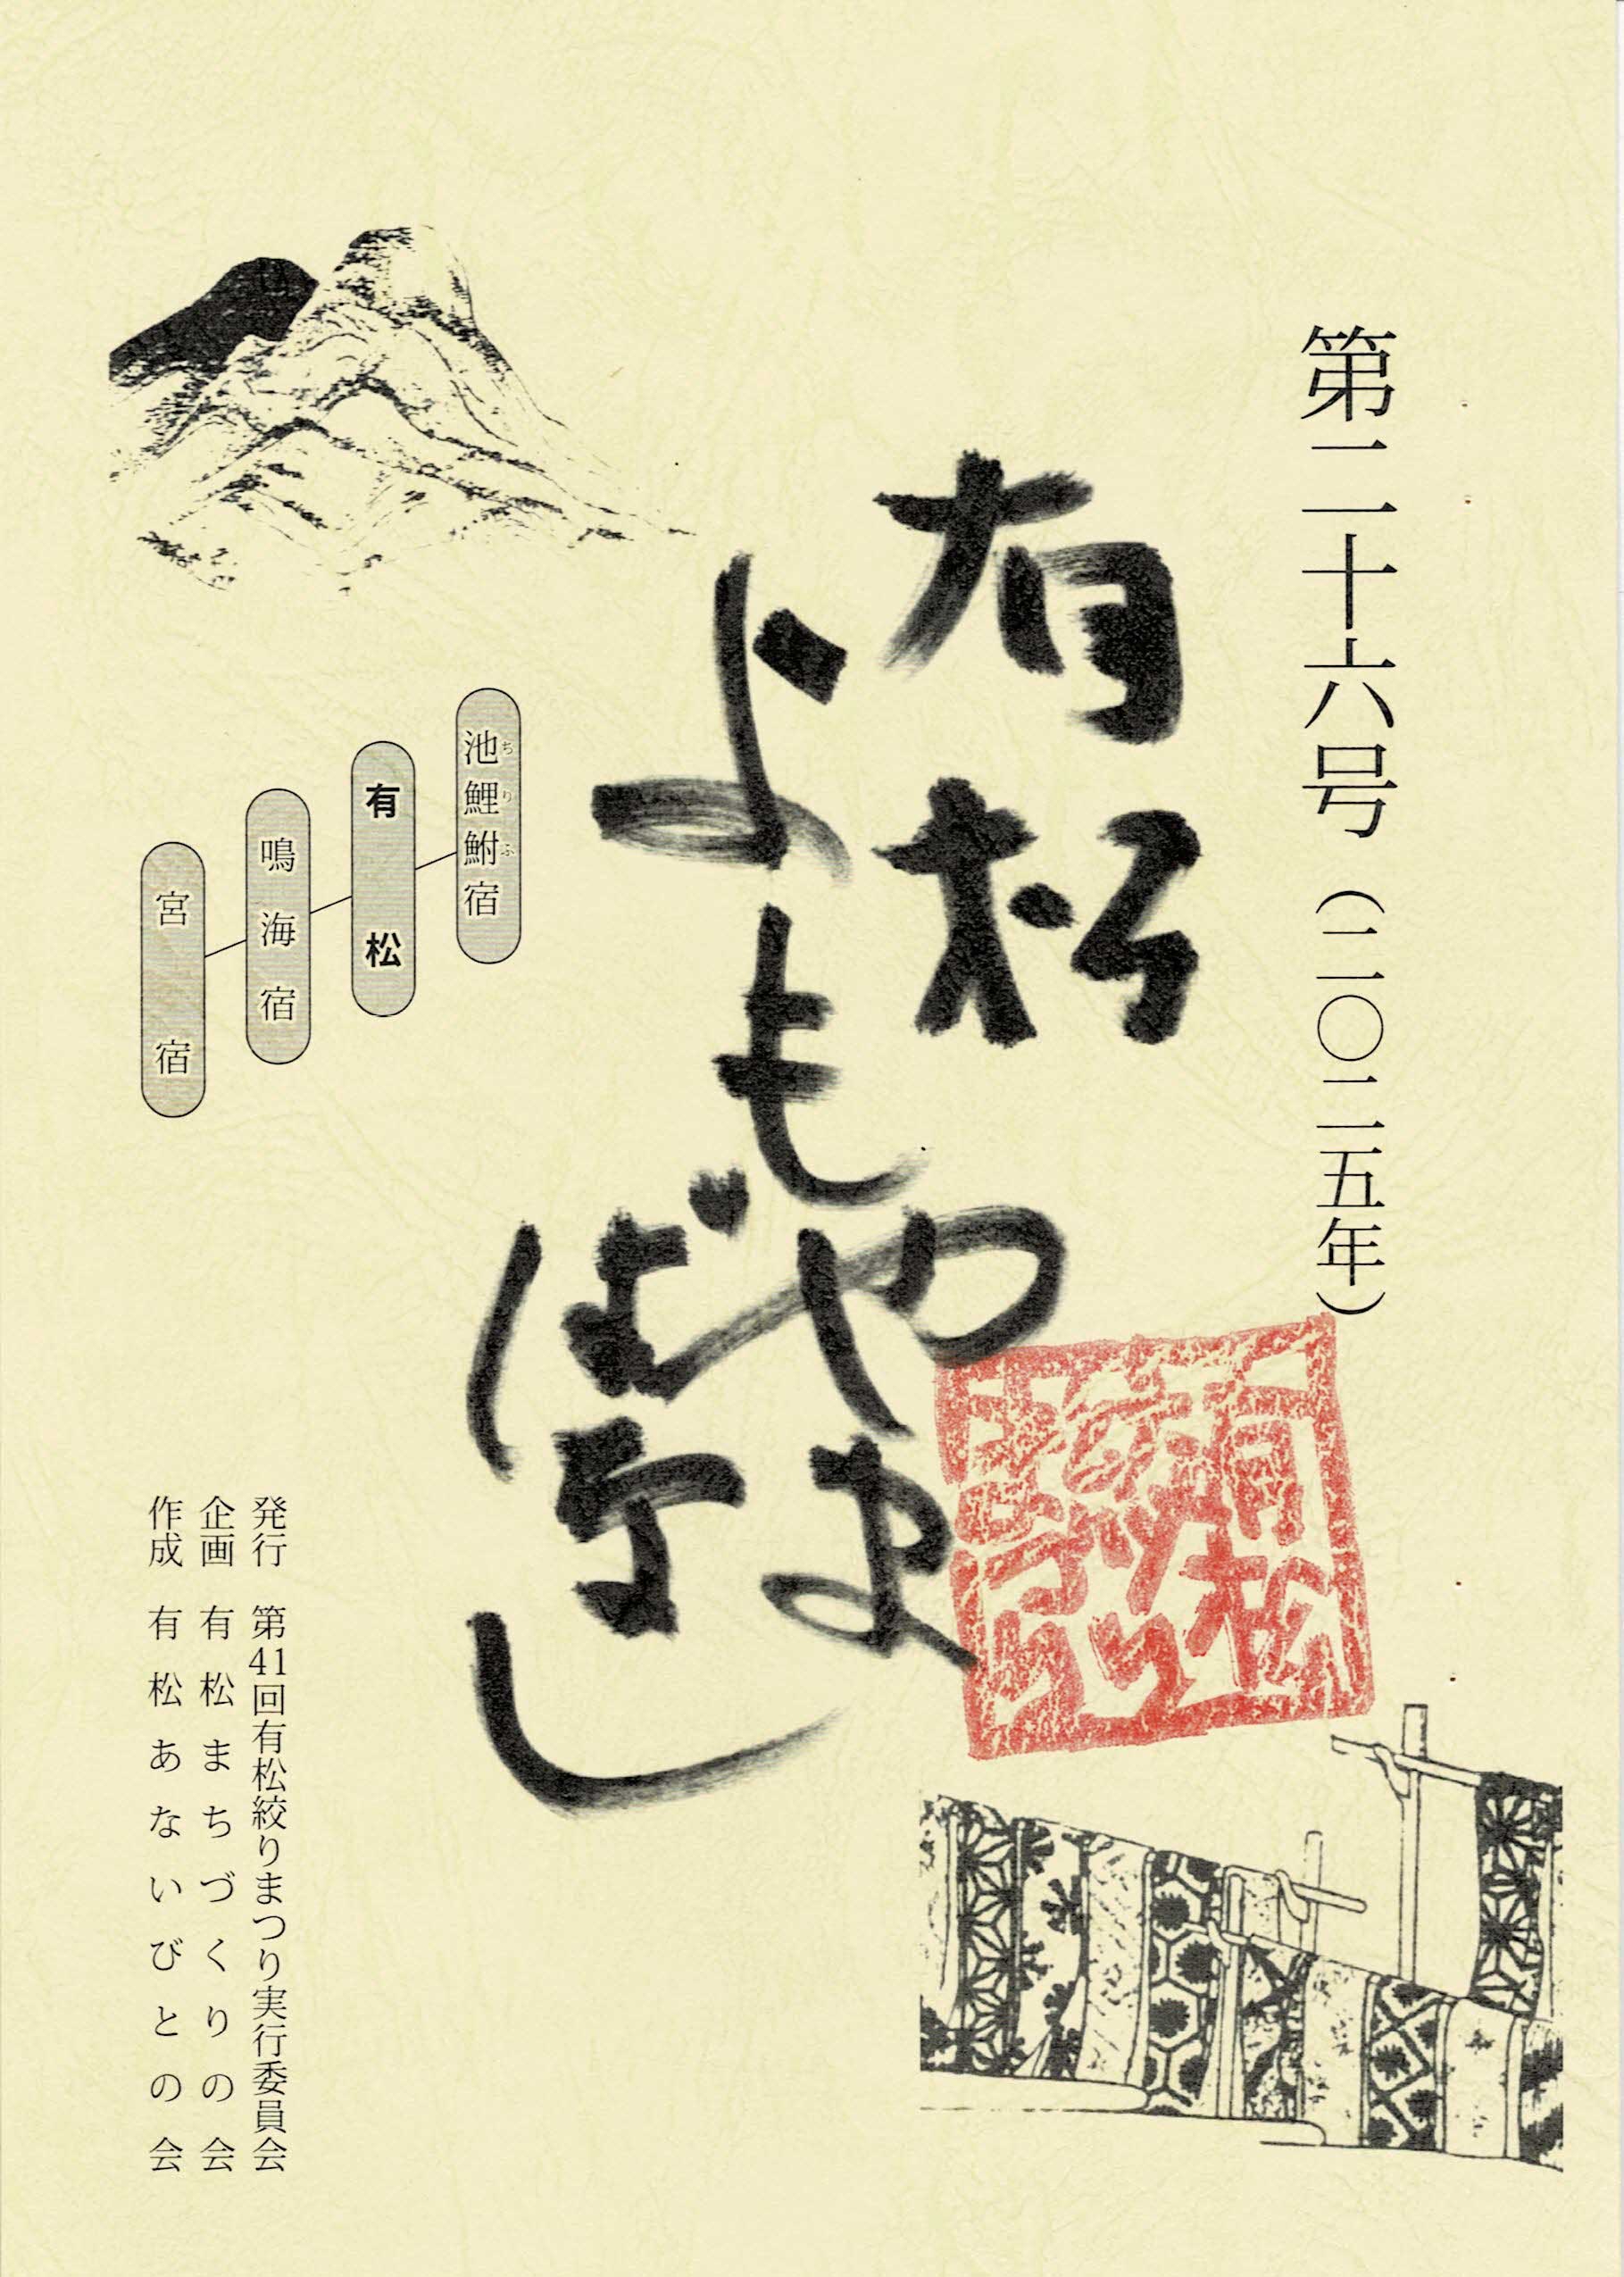 第二十六号（二〇二五年）
有松
よもやま
ばなし
有松
絞り
まつり
池鯉鮒宿
ちりふ
有松
鳴海宿
宮宿
発行 第41回有松絞りまつり実行委員会
企画 有松まちづくりの会
作成 有松あないびとの会